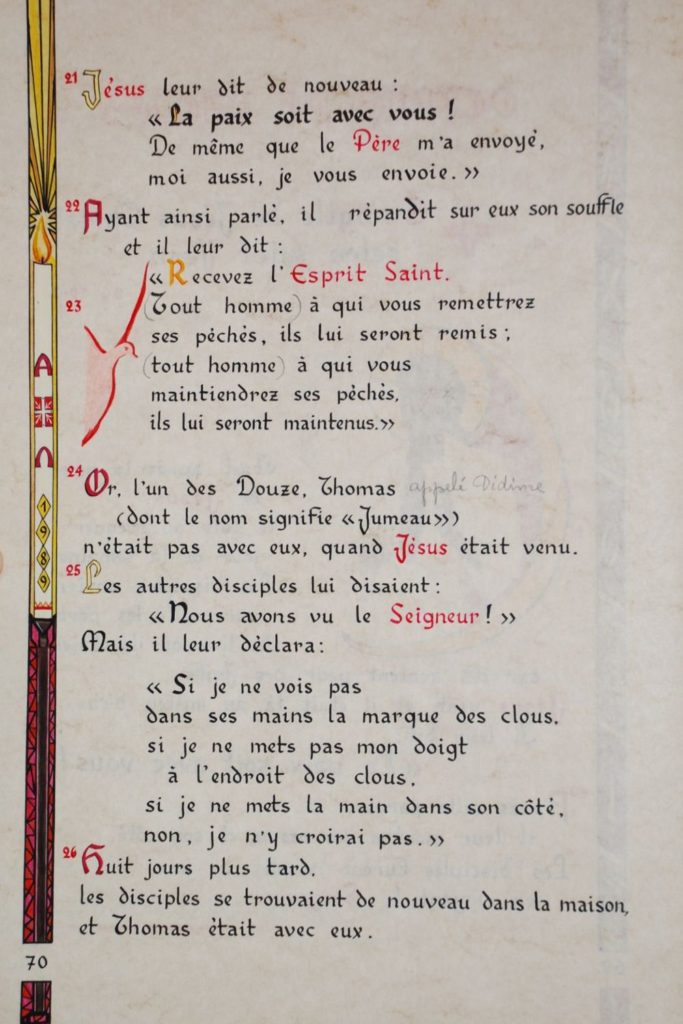 21 Jésus leur dit de nouveau :
« La paix soit avec vous !
De même que le Père m'a envoyé,
moi aussi, je vous envoie. »
22 Ayant ainsi parlé, il répandit sur eux son souffle
et il leur dit :
« Recevez l'Esprit Saint.
23 (Tout homme) à qui vous remettrez
ses péchés, ils lui seront remis ;
(tout homme) à qui vous
maintiendrez ses péchés,
ils lui seront maintenus. »
24 Or, l'un des Douze, Thomas appelé Didime
(dont le nom signifie « Jumeau »)
n'était pas avec eux, quand Jésus était venu.
25 Les autres disciples lui disaient :
« Nous avons vu le Seigneur ! »
Mais il leur déclara :
« Si je ne vois pas
dans ses mains la marque des clous,
si je ne mets pas mon doigt
à l'endroit des clous,
si je ne mets la main dans son côté,
non, je n'y croirai pas. »
26 Huit jours plus tard,
les disciples se trouvaient de nouveau dans la maison,
et Thomas était avec eux.
A
Ω
1989
70